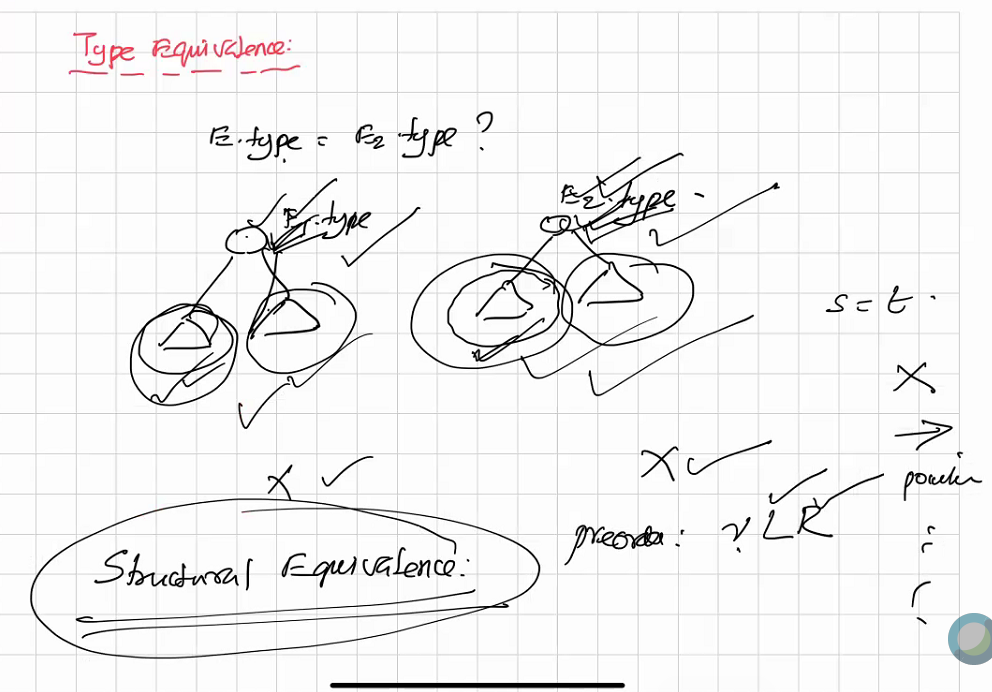 Type Equivalence:
E.type = E2.type ?
E1.type
E2.type
s = t.
X
→
X ✓
X ✓
pointer
preorder: r L R
Structural Equivalence: